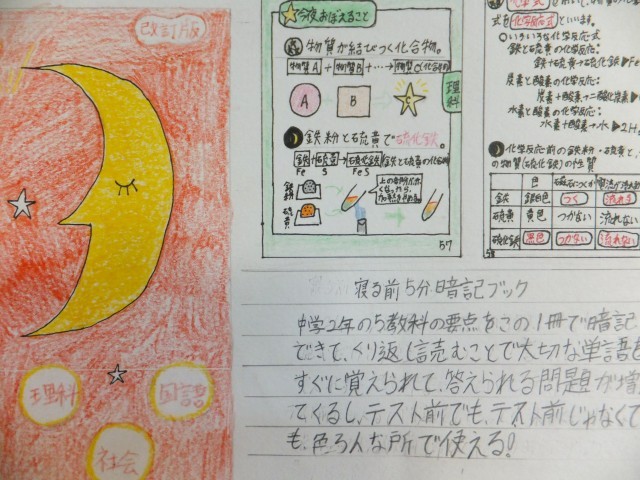 改訂版
理科
国語
社会
今夜おぼえること
物質が結びつく化合物。
物質A + 物質B + ‥‥→ 物質C(化合物)
A
B
C
理科
鉄粉と硫黄で硫化鉄。
鉄+硫黄→硫化鉄
Fe S FeS
鉄粉
硫黄
57
化学反応式
式を化学反応式といいます。
いろいろな化学反応式
鉄と硫黄の化学反応:
鉄+硫黄→硫化鉄▶Fe
炭素と酸素の化学反応:
炭素+酸素→二酸化炭素▶
水素と酸素の化学反応:
水素+酸素→水▶2H
化学反応前の鉄粉・硫黄と、
の物質(硫化鉄)の性質
色
鉄 銀白色 つく 流れる
硫黄 黄色 つかない 流れない
硫化鉄 黒色 つかない 流れない
58
寝る前5分暗記ブック
中学2年の5教科の要点をこの1冊で暗記
できて、くり返し読むことで大切な単語を
すぐに覚えられて、答えられる問題が増
てくるし、テスト前でも、テスト前じゃなくて
も、色ろんな所で使える!